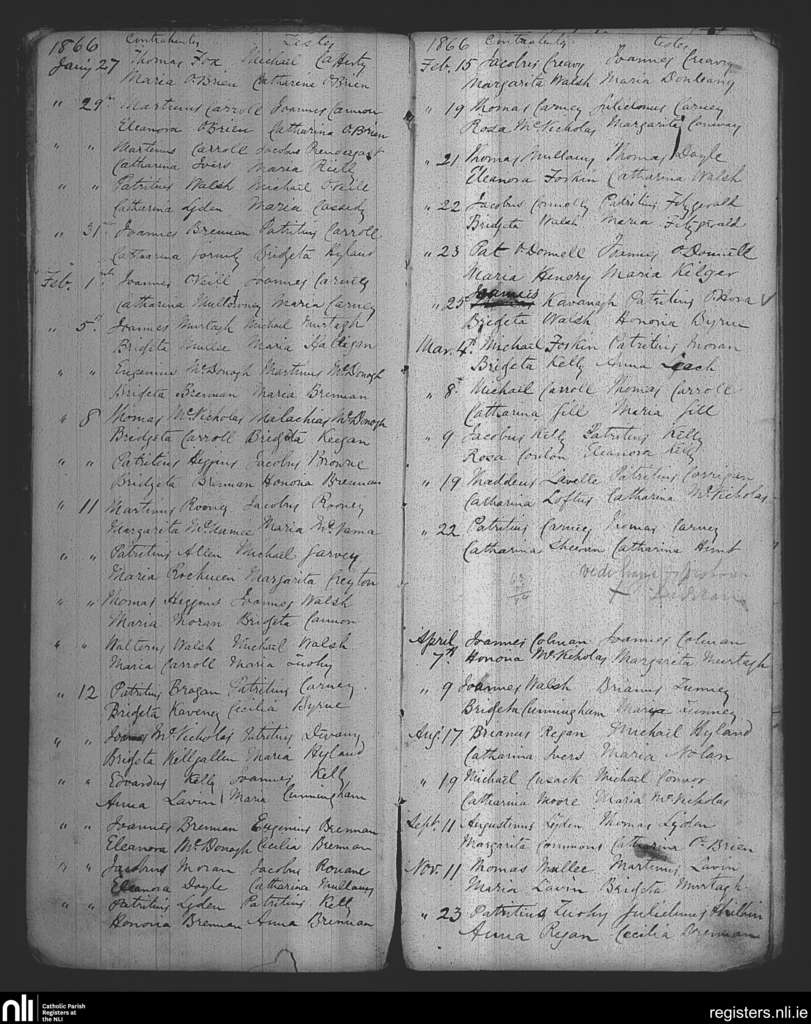 1866 Contrahentes Testes
Jany 27 Thomas Fox Michael Cafferty
Maria O'Brien Catherine O'Brien
" 29th Martinus Carroll Joannes Cannon
Eleanora O'Brien Catharina O'Brien
" " Martinus Carroll Jacobus Prendergast
Catharina Ivers Maria Kielty
" " Patritius Walsh Michael O'Neill
Catharina Lyden Maria Cassedy
" 31st Joannes Brennan Patritius Carroll
Catharina Gormly Bridgeta Hyland
Feb. 1st Joannes O'Neill Joannes Carney
Catharina Mullowney Maria Carney
" 5th Joannes Murtagh Michael Murtagh
Bridgeta Mullee Maria Halligan
" " Eugenius McDonogh Martinus McDonogh
Bridgeta Brennan Maria Brennan
" 8 Thomas McNicholas Malachias McDonogh
Bridgeta Carroll Bridgeta Keegan
" " Patritius Higgins Jacobus Browne
Bridgeta Brennan Honoria Brennan
" 11 Martinus Rooney Jacobus Rooney
Margarita Maria McNama
" " Patritius Allen Michael Garvey
Maria Margarita Creyton
" " Thomas Higgins Joannes Walsh
Maria Moran Bridgeta Cannon
" " Walterus Walsh Michael Walsh
Maria Carroll Maria Tuohy
" 12 Patritius Brogan Patritius Carney
Bridgeta Kaveney Cecilia Byrne
" " McNicholas Patritius Devany
Bridgeta Killgallen Maria Hyland
" " Edvardus Kelly Joannes Kelly
Anna Lavin Maria Cunningham
" " Joannes Brennan Eugenius Brennan
Eleanora McDonagh Cecilia Brennan
" " Jacobus Moran Jacobus Rouane
Eleanora Doyle Catharina Mullany
" " Patritius Lyden Patritius Kelly
Honoria Brennan Anna Brennan
1866 Contrahentes testes
Feb. 15 Jacobus Creavy Joannes Creavy
Margarita Walsh Maria Donleavy
" 19 Thomas Carney Julielmus Carney
Rosa McNicholas Margarita Conway
" 21 Thomas Mullany Thomas Doyle
Eleanora Foskin Catharina Walsh
" 22 Jacobus Connolly Patritius Fitzgerald
Bridgeta Walsh Maria Fitzgerald
" 23 Pat O'Donnell Joannes O'Donnell
Maria Henery Maria Kilger
Joannes
" 25th Kavanagh Patritius O'Hora
Bridgeta Walsh Honoria Byrne
Mar. 4th Michael Foskin Patritius Moran
Bridgeta Kelly Anna Leach
" 8th Michael Carroll Thomas Carroll
Catharina Gill Maria Gill
" 9 Jacobus Kelly Patritius Kelly
Rosa Conlon Eleanora Kelly
" 19 Thaddeus Lavelle Patritius Corrigan
Catharina Loftus Catharina McNicholas
" 22 Patritius Carney Thomas Carney
Catharina Sheeran Catharina Hunt
vide
April 7th Joannes Colman Joannes Colman
Honoria McNicholas Margareta Murtagh
" 9 Joannes Walsh Brianus Tunney
Bridgeta Cunningham Maria Tunney
Aug. 17 Brianus Regan Michael Hyland
Catharina Ivers Maria Nolan
" 19 Michael Cusack Michael Connor
Catharina Moore Maria McNicholas
Sept. 11 Augustinus Lyden Thomas Lydon
Margarita Commons Catharina O'Brien
Nov. 11 Thomas Mullee Martinus Lavin
Maria Lavin Bridgeta Murtagh
" 23 Patritius Tuohy Julielmus Philbin
Anna Regan Cecilia Brennan
nli Catholic Parish
Registers at
the NLI
registers.nli.ie